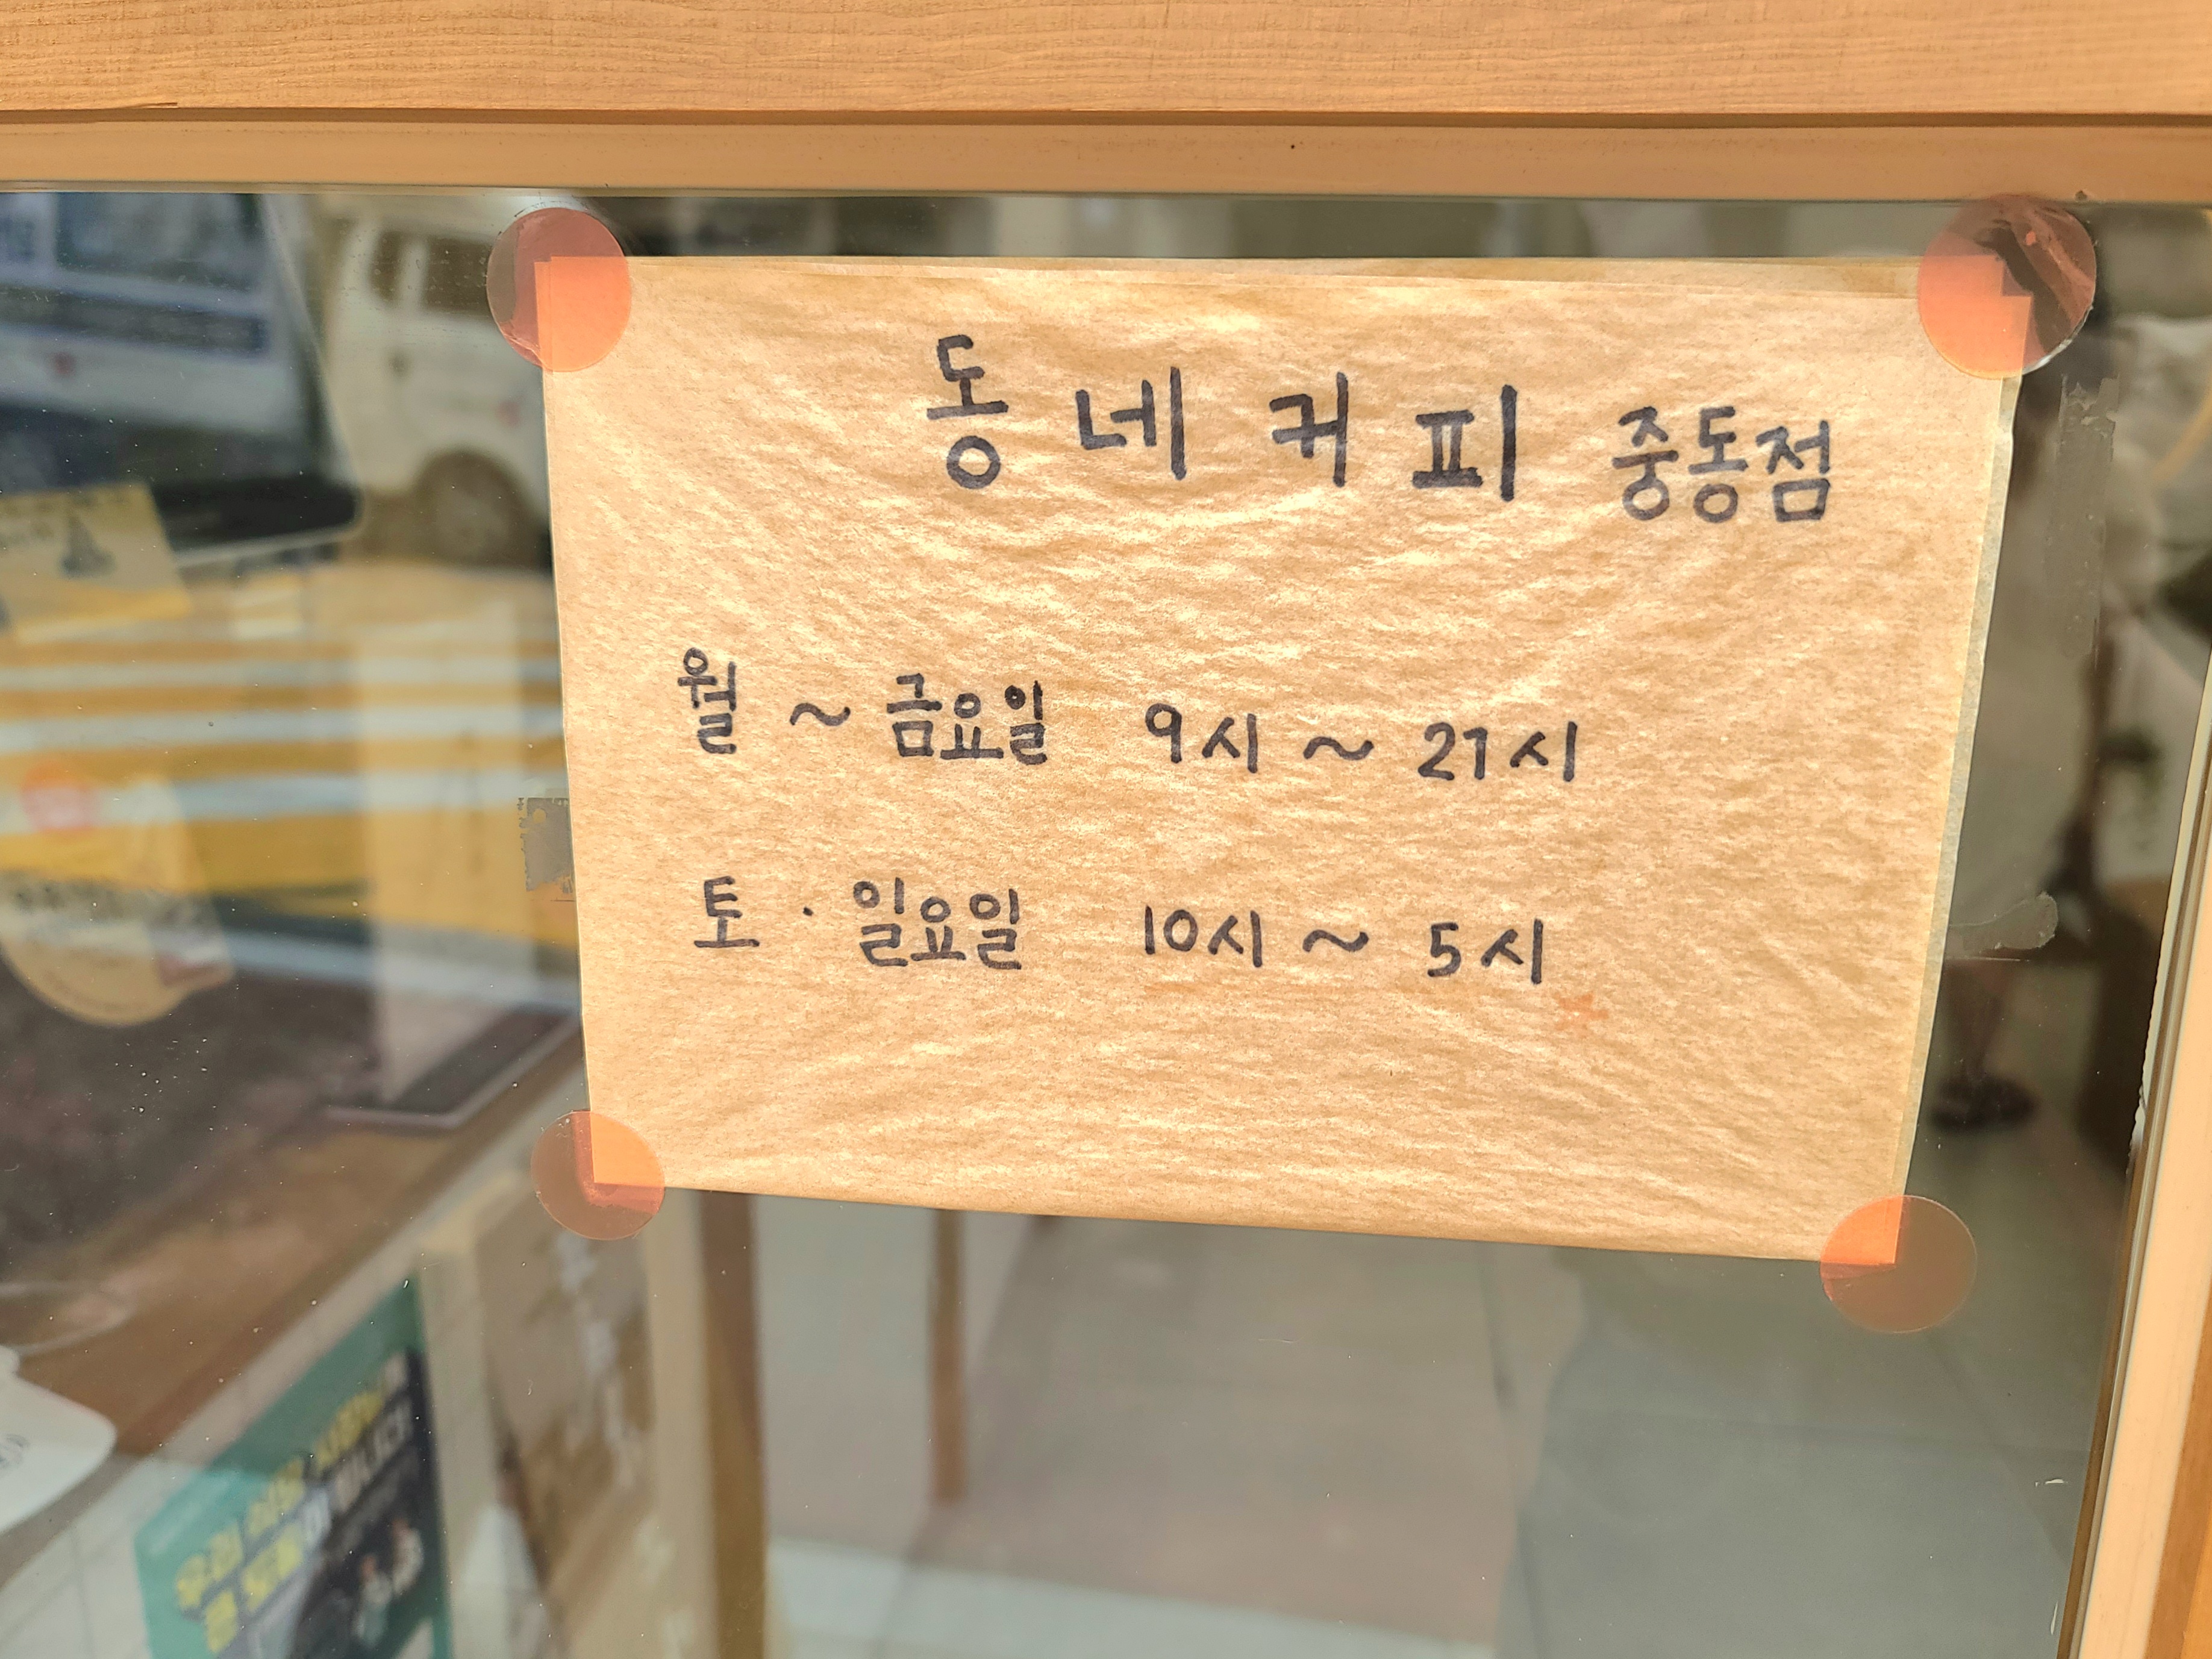 동네커피 중동점
월 ~ 금요일 9시 ~ 21시
토 · 일요일 10시 ~ 5시